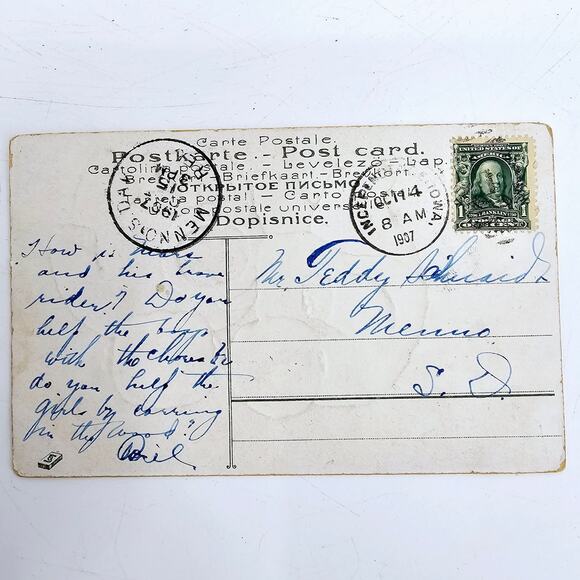 Carte Postale.
Postkarte. - Post card.
Cartolina postale. - Levelező - Lap.
Briefkaart. - Brevkort.
ОТКРЫТОЕ ПИСЬМО
postal - Carto
postale universe
Dopisnice.
MENNO, S. DAK.
OCT
15
3 PM
1907
IOWA.
OCT 14
8 AM
1907
UNITED STATES OF
AMERICA
1
FRANKLIN
How is
and his brave
rider? Do you
help the boys
with the chores or
do you help the
girls by carring
in the wood?
Mr. Teddy
Menno
S. D.